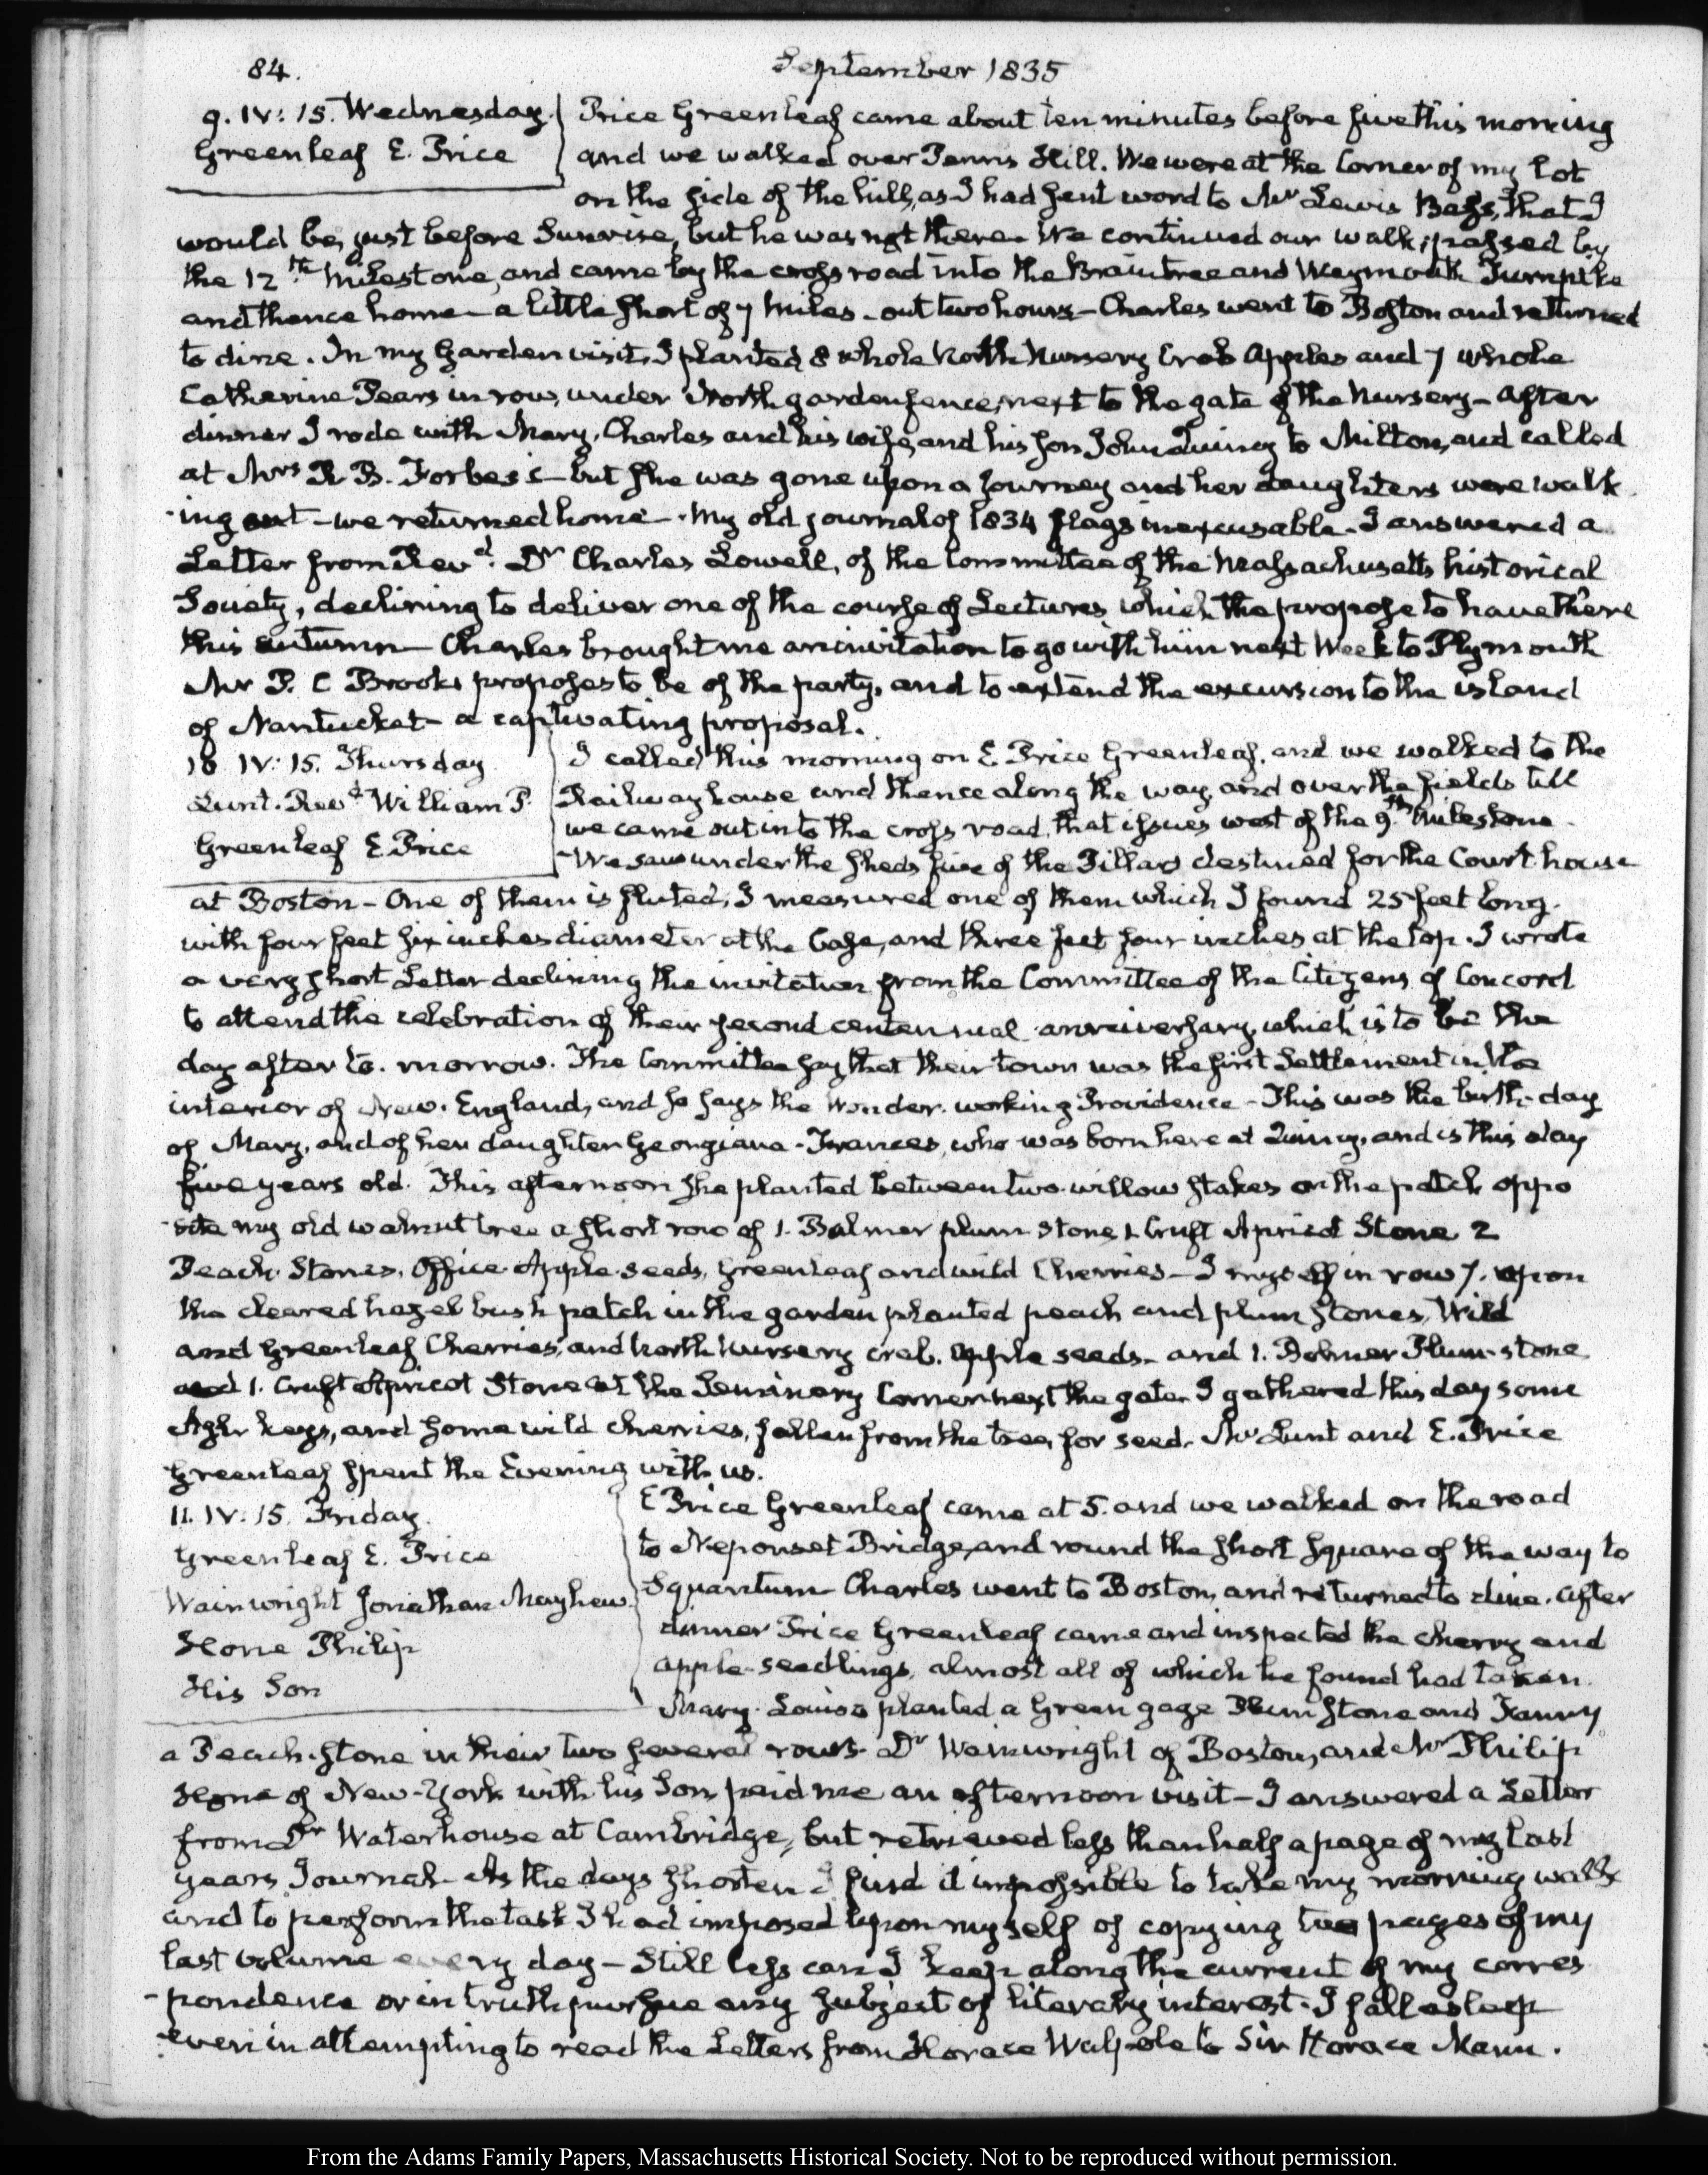 84.
September 1835
9. IV: 15. Wednesday.
Greenleaf E. Price
Price Greenleaf came about ten minutes before five this morning
and we walked over Penns Hill. We were at the Corner of my Lot
on the side of the hill, as I had sent word to Mr Lewis Bass, that I
would be, just before Sunrise, but he was not there. We continued our walk; passed by
the 12th Milestone, and came by the cross road into the Braintree and Weymouth Turnpike
and thence home — a little short of 7 Miles — out two hours — Charles went to Boston and returned
to dine. In my Garden visit, I planted 8 whole North Nursery Crab Apples and 7 whole
Catherine Pears in row, under North garden fence, next to the gate of the Nursery — After
dinner I rode with Mary, Charles and his wife, and his son John Quincy to Milton, and called
at Mrs R. B. Forbes's — but she was gone upon a Journey and her daughters were walk
-ing out — we returned home — My old journal of 1834 flags inexcusable. I answered a
Letter from Revd. Dr Charles Lowell, of the Committee of the Massachusetts historical
Society, declining to deliver one of the course of Lectures which the propose to have there
this autumn — Charles brought me an invitation to go with him next Week to Plymouth
Mr P. C Brooks proposes to be of the party, and to extend the excursion to the island
of Nantucket — a captivating proposal.
10. IV: 15. Thursday
Lunt. Revd William P.
Greenleaf E Price
I called this morning on E. Price Greenleaf, and we walked to the
Railway house and thence along the way, and over the fields till
we came out into the cross road, that issues west of the 9th Milestone.
— We saw under the sheds five of the Pillars destined for the Court house
at Boston — One of them is fluted; I measured one of them which I found 25 feet long.
with four feet six inches diameter at the base, and three feet four inches at the top. I wrote
a very short Letter declining the invitation from the Committee of the Citizens of Concord
to attend the celebration of their second centennial anniversary, which is to be the
day after to-morrow. The Committee say that their town was the first Settlement in the
interior of New-England, and so says the Wonder-working Providence — This was the birth-day
of Mary, and of her daughter Georgiana-Frances, who was born here at Quincy, and is this day
five years old. This afternoon she planted between two willow stakes on the patch oppo
-site my old walnut tree a short row of 1. Bolmer plum stone 1 Cruft Apricot Stone 2
Peach Stones, Office Apple seeds, Greenleaf and wild Cherries — I myself in row 7. upon
the cleared hazel bush patch in the garden planted peach and plum stones, Wild
and Greenleaf Cherries, and North Nursery crab. apple seeds — and 1. Bolmer Plum-stone
and 1. Cruft Apricot Stone at the Seminary Corner next the gate. I gathered this day some
Ash keys, and some wild cherries, fallen from the tree, for seed. Mr Lunt and E. Price
Greenleaf spent the Evening with us.
11. IV: 15. Friday.
Greenleaf E. Price
Wainwright Jonathan Mayhew.
Hone Philip
His Son
E Price Greenleaf came at 5. and we walked on the road
to Neponset Bridge, and round the short square of the way to
Squantum — Charles went to Boston, and returned to dine. After
dinner Price Greenleaf came and inspected the cherry and
apple-seedlings, almost all of which he found had taken.
Mary-Louisa planted a Green gage Plum stone and Fanny
a Peach-stone in their two several rows. Dr Wainwright of Boston, and Mr Philip
Hone of New-York with his Son, paid me an afternoon visit — I answered a Letter
from Dr Waterhouse at Cambridge, but retrieved less than half a page of my last
years Journal — As the days shorten I find it impossible to take my morning walk
and to perform the task I had imposed upon myself of copying two pages of my
last volume every day — Still less can I keep along the current of my corres
-pondence or in truth pursue any subject of literary interest. I fall asleep
even in attempting to read the Letters from Horace Walpole to Sir Horace Mann.
From the Adams Family Papers, Massachusetts Historical Society. Not to be reproduced without permission.